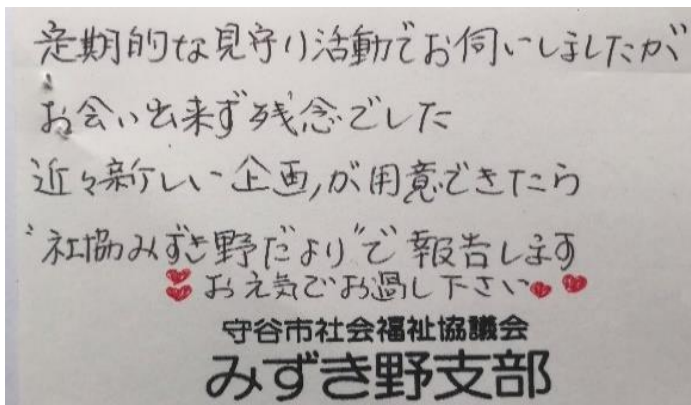 定期的な見守り活動でお伺いしましたが
お会い出来ず残念でした
近々新しい企画が用意できたら
〝社協みずき野だより〟で報告します
お元気でお過し下さい
守谷市社会福祉協議会
みずき野支部